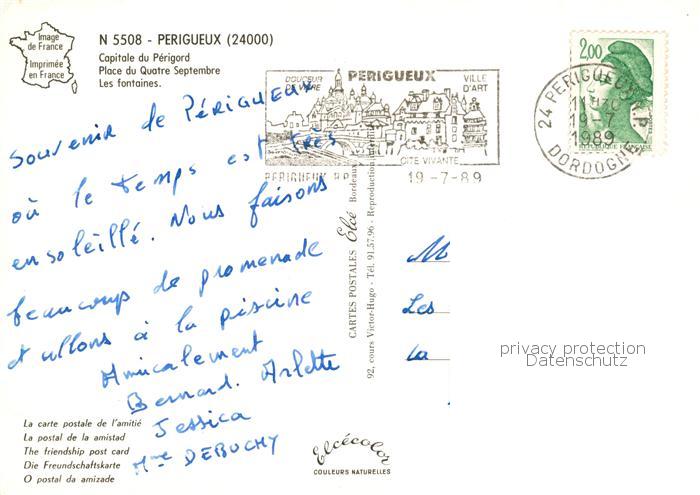 Image
de France
Imprimée
en France
N 5508 - PERIGUEUX (24000)
Capitale du Périgord
Place du Quatre Septembre
Les fontaines.
DOUCEUR
DE VIVRE
PERIGUEUX
VILLE
D'ART
CITE VIVANTE
PERIGUEUX R.P.
19-7-89
2,00
24 PERIGUEUX R.P.
11H30
19-7
1989
DORDOGNE
Souvenir de Périgueux
où le temps est très
ensoleillé. Nous faisons
beaucoup de promenade
et allons à la piscine
Amicalement
Bernard. Arlette
Jessica
Mme DEBUCHY
CARTES POSTALES Elcé Bordeaux
92, cours Victor-Hugo - Tél. 91.57.96 - Reproduction
M
Les
La
privacy protection
Datenschutz
La carte postale de l'amitié
La postal de la amistad
The friendship post card
Die Freundschaftskarte
O postal da amizade
Elcécolor
COULEURS NATURELLES